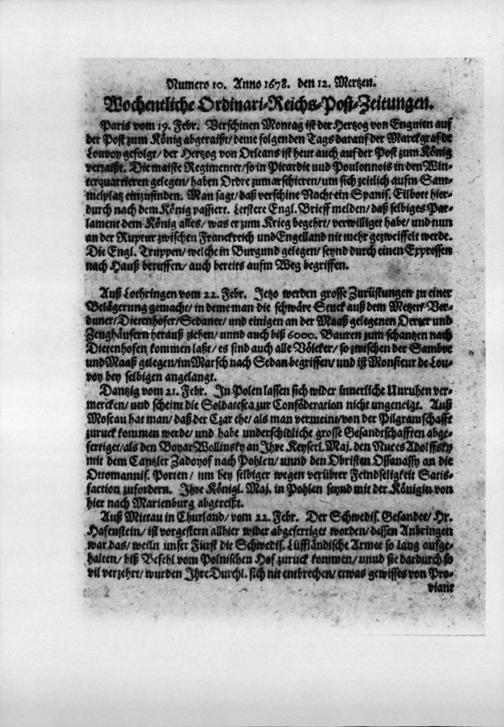 Numero 10. Anno 1678. den 12. Mertzen.
Wochentliche Ordinari-Reichs-Post-Zeitungen.
Paris vom 19. Febr. Verschinen Montag ist der Hertzog von Enguien auf
der Post zum König abgeraißt/ deme folgenden Tags darauf der Marckgraf de
Louvoy gefolgt/ der Hertzog von Orleans ist heut auch auf der Post zum König
verraißt. Die maiste Regimenter/ so in Picardie und Poulonnois in den Win-
terquartieren gelegen/ haben Ordre zumarschieren/ um sich zeitlich aufm Sam-
melplatz einzufinden. Man sagt/ daß verschine Nacht ein Spanis. Eilbott hier-
durch nach dem König passiert. Letstere Engl. Brieff melden/ daß selbiges Par-
lament dem König alles/ was er zum Krieg begehrt/ verwilliget habe/ und nun
an der Ruptur zwischen Franckreich und Engelland nit mehr gezweiffelt werde.
Die Engl. Truppen/ welche in Burgund gelegen/ seynd durch einen Expressen
nach Hauß beruffen/ auch bereits aufm Weg begriffen.
Auß Lothringen vom 22. Febr. Jetzo werden grosse Zurüstungen zu einer
Belägerung gemacht/ in deme man die schwäre Stuck auß dem Metzer/ Ver-
duner/ Dietenhofer/ Sedaner/ und einigen an der Maaß gelegenen Oerter und
Zeughäusern herauß ziehen/ unnd auch biß 6000. Bauren zum schantzen nach
Dietenhofen kommen laßt/ es sind auch alle Völcker/ so zwischen der Sambre
und Maaß gelegen/ im Marsch nach Sedan begriffen/ und ist Monsieur de Lou-
voy bey selbigen angelangt.
Dantzig vom 21. Febr. In Polen lassen sich wider innerliche Unruhen ver-
mercken/ und scheint die Soldatesca zur Confóderation nicht ungeneigt. Auß
Moscau hat man/ daß der Czar ehe/ als man vermeint/ von der Pilgramschafft
zuruck kommen werde/ und habe underschidliche grosse Gesandtschafften abge-
fertiget/ als den Boyar Wollinsky an Ihre Keyserl. Maj. den Nuces Adolffsky
mit dem Cantzler Zadoyof nach Pohlen/ unnd den Obristen Ossanassy an die
Ottomannis. Porten/ um bey selbiger wegen verübter Feindseligkeit Satis-
faction zufordern. Ihre Königl. Maj. in Pohlen seynd mit der Königin von
hier nach Marienburg abgereißt.
Auß Mittau in Churland/ vom 22. Febr. Der Schwedis. Gesandte/ Hr.
Hafenstein/ ist vorgestern allhier wider abgefertiget worden/ dessen Anbringen
war das/ weiln unser Fürst die Schwedis. Liffländische Armee so lang aufge-
halten/ biß Befehl vom Polnischen Hof zuruck kommen/ unnd sie dardurch so
vil verzehrt/ wurden Ihre Durchl. sich nit entbrechen/ etwas gewisses von Pro-
viant